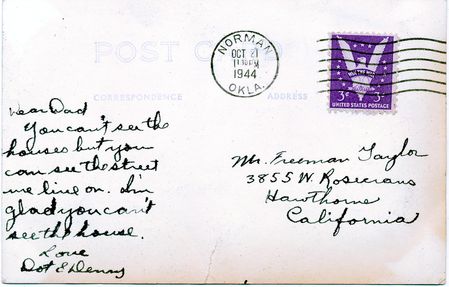 POST CARD
NORMAN
OCT 21
1944
OKLA.
3¢ 3¢
UNITED STATES POSTAGE
CORRESPONDENCE
ADDRESS
Dear Dad
You can't see the
houses but you
can see the street
we live on. I'm
glad you can't
see the house.
Love
Dot & Denny
Mr. Freeman Taylor
3855 W. Rosecrans
Hawthorne
California